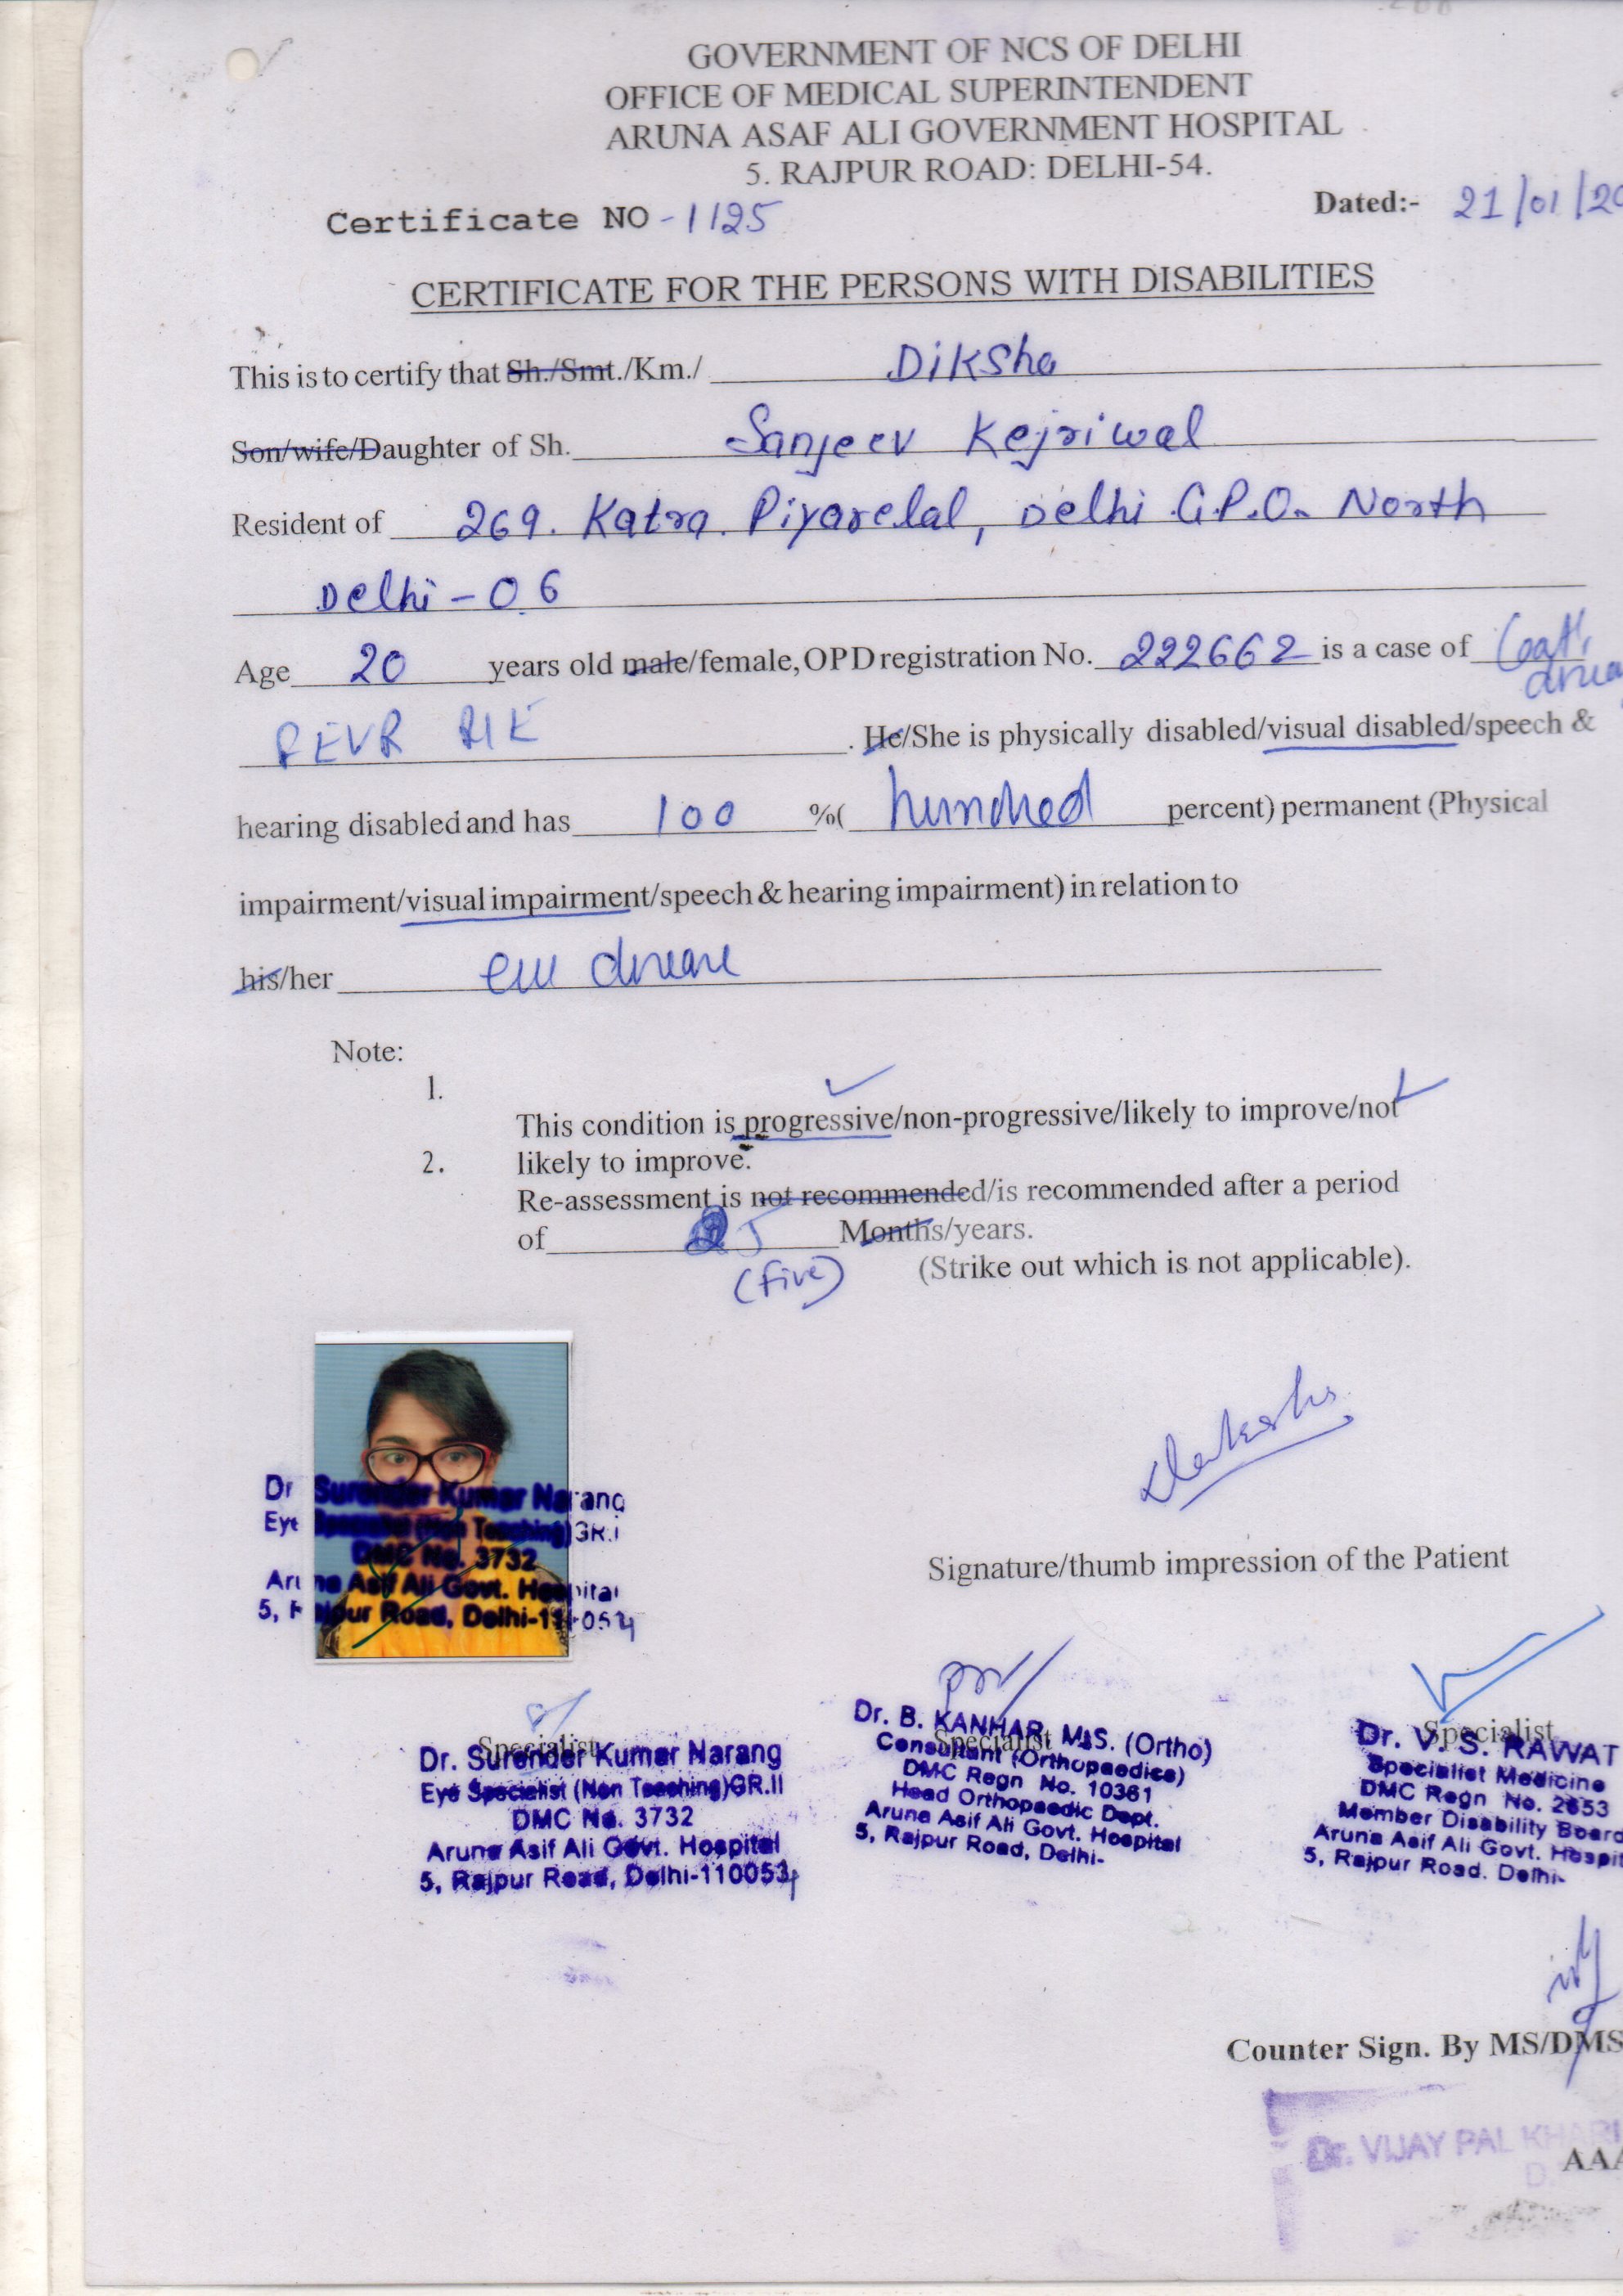 GOVERNMENT OF NCS OF DELHI
OFFICE OF MEDICAL SUPERINTENDENT
ARUNA ASAF ALI GOVERNMENT HOSPITAL
5. RAJPUR ROAD: DELHI-54.
Certificate NO - 1125
Dated:- 21/01/20
CERTIFICATE FOR THE PERSONS WITH DISABILITIES
This is to certify that Sh./Smt./Km./ Diksha
Son/wife/Daughter of Sh. Sanjeev Kejriwal
Resident of 269. Katra. Piyarelal, Delhi G.P.O. North
Delhi - 06
Age 20 years old male/female, OPD registration No. 222662 is a case of
. He/She is physically disabled/visual disabled/speech &
hearing disabled and has 100 %( hundred percent) permanent (Physical
impairment/visual impairment/speech & hearing impairment) in relation to
his/her
Note:
1.
This condition is progressive/non-progressive/likely to improve/not
2. likely to improve.
Re-assessment is not recommended/is recommended after a period
of 5 Months/years.
(five) (Strike out which is not applicable).
Dr Surender Kumar Narang
Eye Specialist (Non Teaching) GR.I
DMC No. 3732
Aruna Asif Ali Govt. Hospital
5, Rajpur Road, Delhi-110054
Signature/thumb impression of the Patient
Specialist
Dr. Surender Kumar Narang
Eye Specialist (Non Teaching) GR.II
DMC No. 3732
Aruna Asif Ali Govt. Hospital
5, Rajpur Road, Delhi-110054
Specialist
Dr. B. KANHAR M.S. (Ortho)
Consultant (Orthopaedics)
DMC Regn No. 10361
Head Orthopaedic Dept.
Aruna Asif Ali Govt. Hospital
5, Rajpur Road, Delhi-
Specialist
Dr. V. S. RAWAT
Specialist Medicine
DMC Regn No. 2653
Member Disability Board
Aruna Asif Ali Govt. Hospit
5, Rajpur Road. Delhi-
Counter Sign. By MS/DMS
Dr. VIJAY PAL
AAA